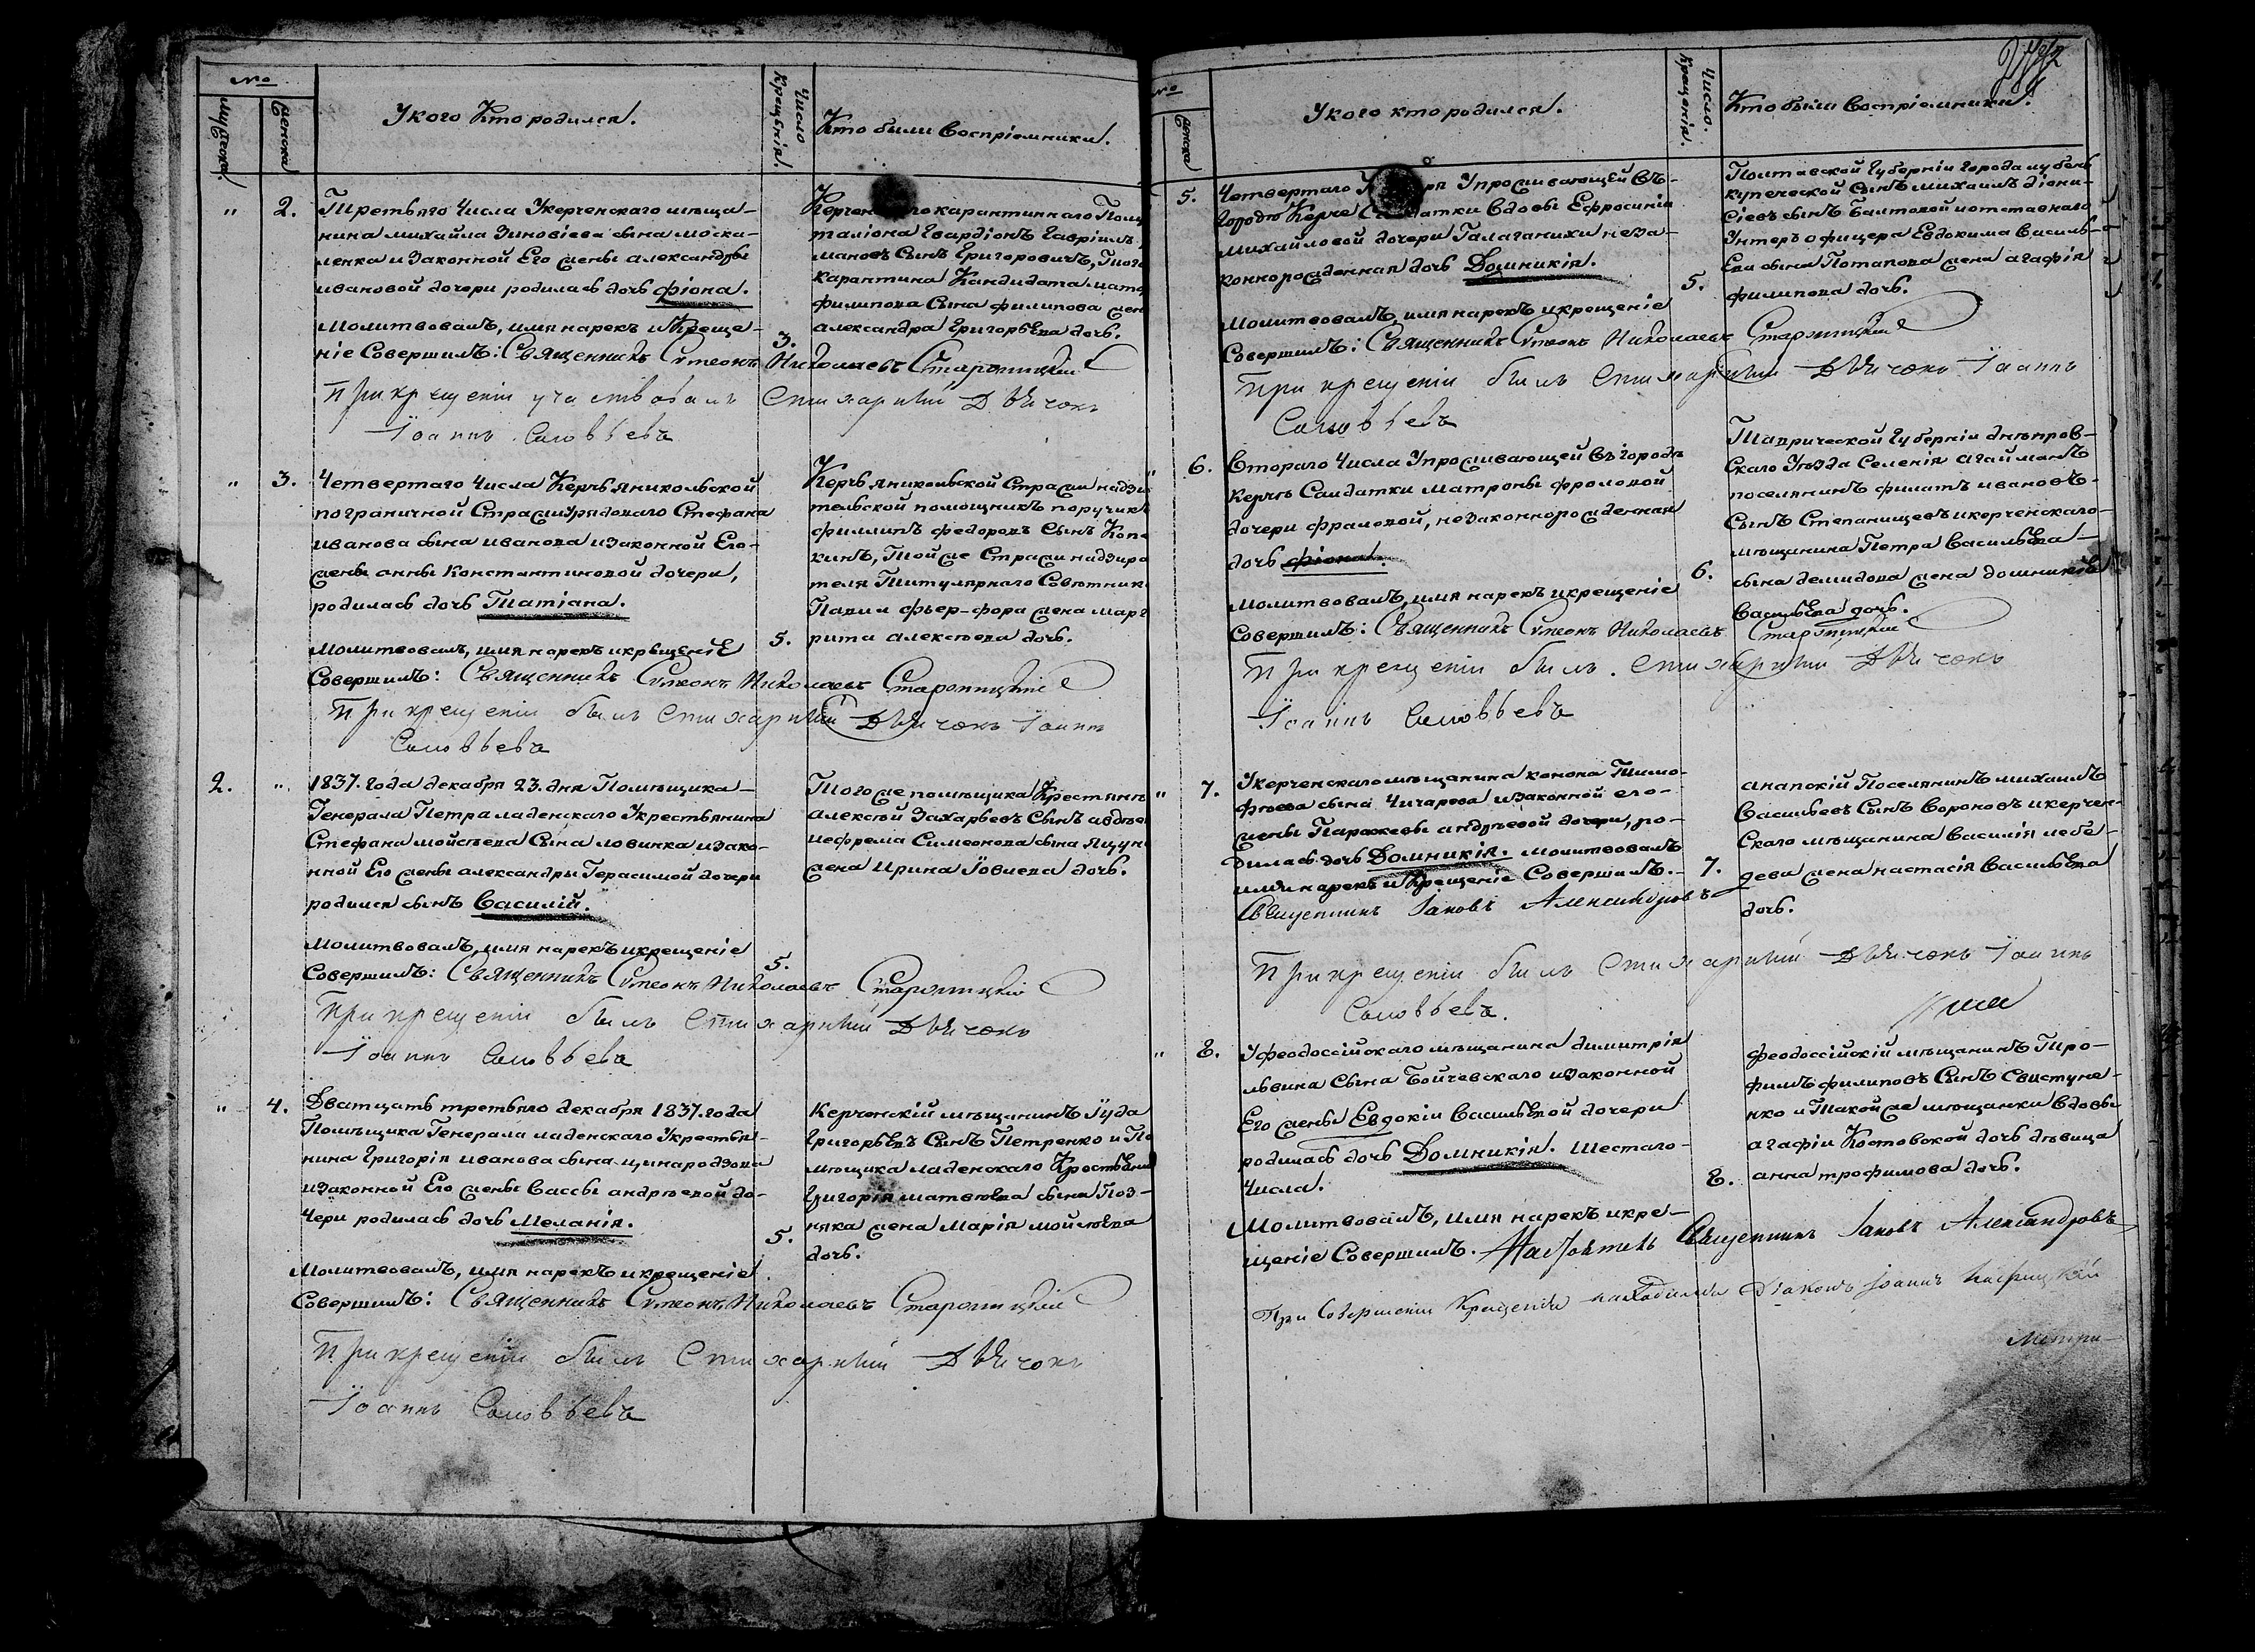 №
Мужеска.
Женска
У кого Кто родился.
Число Крещенія.
Кто были Воспріемники.
" 2.
Третьяго Числа Укерченскаго мѣща-
нина михайла Зиновіева сына моска-
ленка и Законной Его жены александры
ивановой дочери родилась дочь фіона.
Молитвовалъ, имя нарекъ и Креще-
ніе Совершилъ: Священникъ Сѵмеонъ Николаевъ Старопицкій
3.
При крещеніи участвовалъ Стихарный Дьячокъ
Іоаннъ Соловьевъ
карантиннаго
таліона Гвардіонъ Гавріилъ
мановъ Сынъ Григоровичъ, Того
карантина Кандидата
филипова Сына филипова
александра Григорьева дочь.
" 3.
Четвертаго Числа Керчь яникольской
пограничной Стражи рядоваго Стефана
иванова сына иванова изаконной Его-
жены анны Константиновой дочери,
родилась дочь Татіана.
Молитвовалъ, имя нарекъ икрещеніЕ
5.
Совершилъ: Священникъ Сѵмеонъ Николаевъ Старопицкій
При крещеніи былъ Стихарный Дьячокъ Іоаннъ
Соловьевъ
Керчь яникольской Стражи
тельской помощникъ поручикъ
филипъ федоровъ Сынъ
кинъ, Той же Стражи надзира
теля Титулярнаго Совѣтника
жена марг
рита алексѣева дочь.
2. "
1837. Года декабря 23. дня Помѣщика-
Генерала Петра ладенскаго Укрестьянина
Стефана мойсѣева Сына ловинка изако-
нной Его жены александры Герасимой дочери
родился сынъ Василій.
Молитвовалъ, имя нарекъ икрещеніе
5.
Совершилъ: Священникъ Сѵмеонъ Николаевъ Старопицкій
При крещеніи былъ Стихарный Дьячокъ
Іоаннъ Соловьевъ
Того же помѣщика
алексѣй Захарьевъ Сынъ
иефрема Симеонова сына
жена Ирина Іовиева дочь.
" 4.
Дватцать третьяго декабря 1837. года
Помѣщика Генерала ладенскаго Укрестья-
нина Григорія иванова сына
изаконной Его жены Вассы андрѣевой до-
чери родилась дочь Меланія.
5.
Молитвовалъ, имя нарекъ икрещеніе
Совершилъ: Священникъ Сѵмеонъ Николаевъ Старопицкій
При крещеніи былъ Стихарный Дьячокъ
Іоаннъ Соловьевъ
Керченскій мѣщанинъ Іуда
Григорьевъ Сынъ Петренко и По
мѣщика ладенскаго
Григорія матвѣева сына Поз-
няка жена Марія мойсѣева
дочь.
№
Женска
У кого кто родился.
Число. Крещенія.
Кто были Воспріемники.
5.
Четвертаго Упроживающей въ-
Городѣ Керчѣ вдовы Ефросиніи
михайловой дочери Галаганихи неза-
коннорожденная дочь Домникія.
5.
Молитвовалъ, имя нарекъ икрещеніе
Совершилъ: Священникъ Сѵмеонъ Николаевъ Старопицкій
При крещеніи былъ Стихарный Дьячокъ Іоаннъ
Соловьевъ
Полтавской Губерніи Города
купеческой Сынъ михаилъ діони-
сіевъ сынъ иотставнаго
Унтеръ офицера Евдокима Василь-
Ева сына Потапова жена агафія
филипова дочь.
" 6.
Втораго Числа Упроживающей въгородѣ
Керчѣ Салдатки матроны фроловой
дочери фраловой, незаконнорожденная
дочь фіона.
6.
Молитвовалъ, имя нарекъ икрещеніе
Совершилъ: Священникъ Сѵмеонъ Николаевъ Старопицкій
При крещеніи былъ. Стихарный Дьячокъ
Іоаннъ Соловьевъ
Таврической Губерніи днѣпров-
Скаго Уѣзда Селенія агайманъ
поселянинъ филатъ ивановъ-
Сынъ Степанищевъ икерченскаго-
мѣщанина Петра Васильева-
сына демидова жена домникія
Васильева дочь.
" 7.
Укерченскаго мѣщанина конона Тимо-
фѣева сына Чичарева изаконной его-
жены Парасковы андрѣевой дочери, ро-
дилась дочь Домникія. Молитвовалъ
имя нарекъ и Крещеніе Совершилъ.-
7.
Священникъ Іаковъ Александровъ
При крещеніи былъ Стихарный Дьячокъ Іоаннъ
Соловьевъ.
анапскій Поселянинъ михаилъ
Васильевъ Сынъ Вороновъ икерчен-
Скаго мѣщанина Василія лебе-
дева жена настасія Васильева
дочь.
" 8.
Уфеодоссійскаго мѣщанина димитрія
львина Сына Бойчевскаго изаконной
Его жены Евдокіи Васильевой дочери
родилась дочь Домникія. Шестаго-
Числа.
8.
Молитвовалъ, имя нарекъ икре-
щеніе Совершилъ. Настоятель Священникъ Іаковъ Александровъ
При Совершеніи Крещенія находился Діаконъ Іоаннъ
феодоссійскій мѣщанинъ Тро-
фимъ филиповъ Сынъ Свистуне-
нко и Такой же мѣщанки вдовы
агафіи Костовской дочь дѣвица
анна трофимова дочь.
Метри-